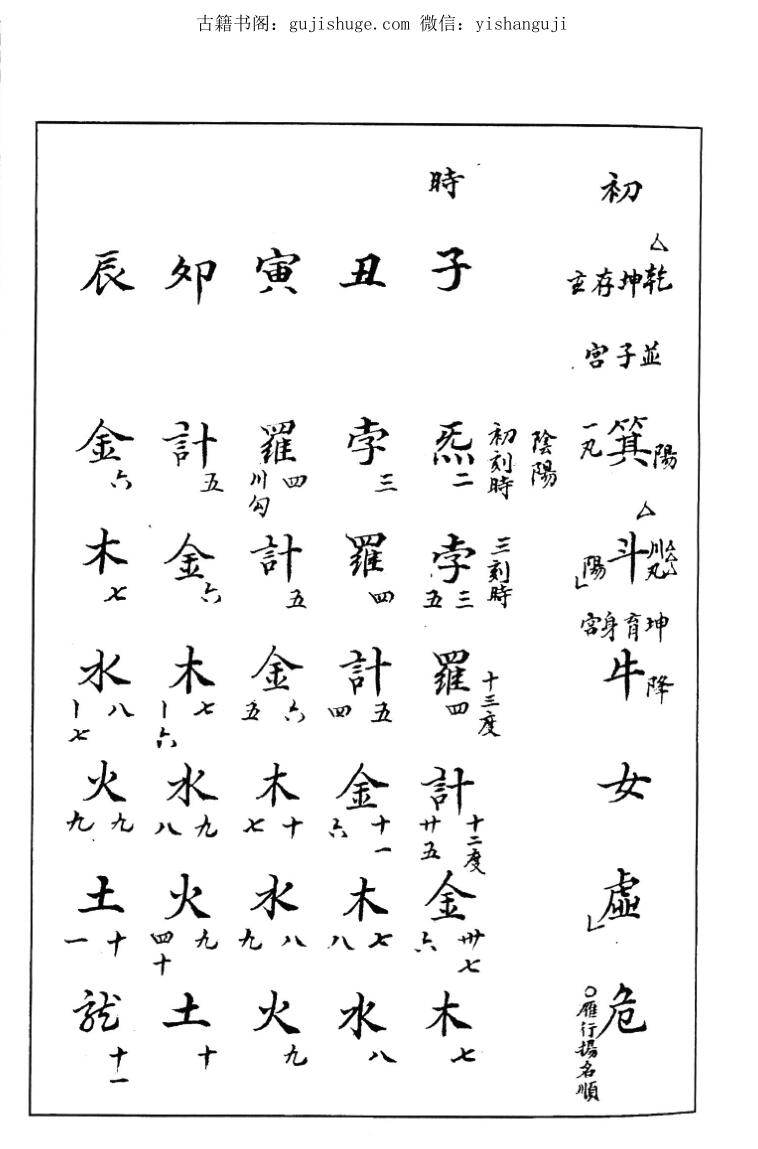 古籍书阁：gujishuge.com 微信：yishanguji
初
△乾坤存主
並子宮
箕 陽 一丸
△
斗 川丸 △△△ 陽
坤育身宮
牛 降
女
虛
危 ○雁行揚名順
陰陽
初刻時 三刻時 十三度 十二度
時
子 炁二 孛三五 羅四 計廿五 金卅七 六 木七
丑 孛三 羅四 計五四 金十一六 木七八 水八
寅 羅四 川勾 計五 金六五 木十七 水八九 火九
卯 計五 金六 木七 六 水九八 火九四十 土十
辰 金六 木七 水八 七 火九九 土十一 龍十一